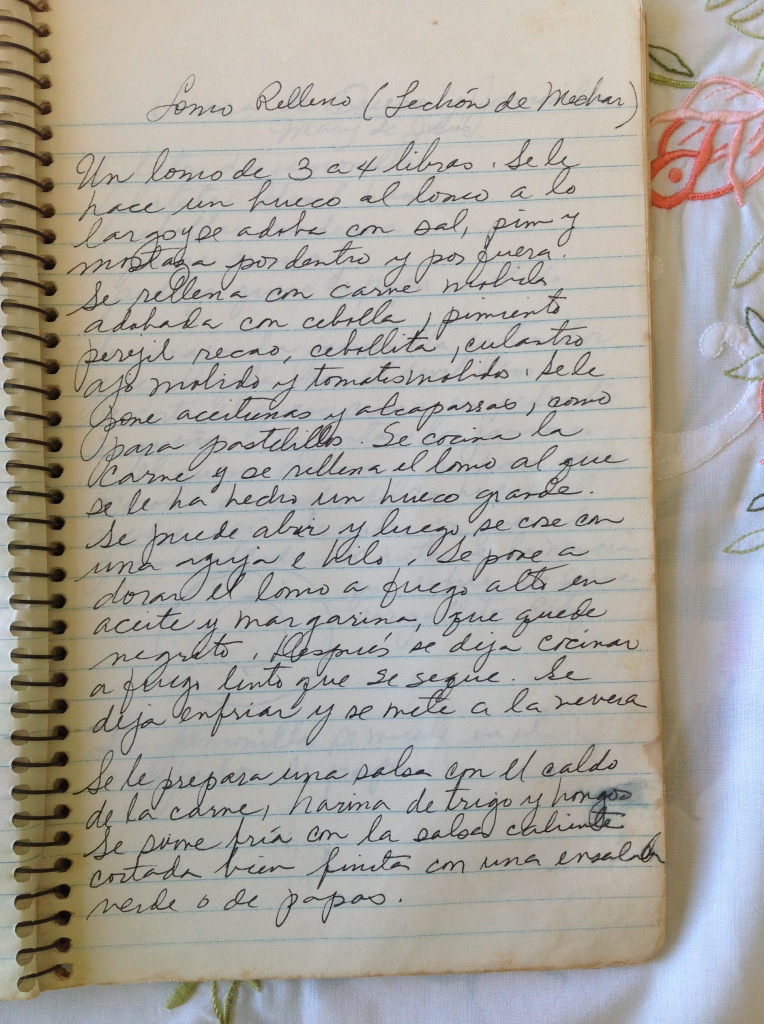 Lomo Relleno (Lechón de Mechar)
Un lomo de 3 a 4 libras. Se le
hace un hueco al lomo a lo
largo y se adoba con sal, pim y
mostaza por dentro y por fuera.
Se rellena con carne molida
adobada con cebolla, pimiento
perejil recao, cebollita, culantro
ajo molido y tomates molido. Se le
pone aceitunas y alcaparras, como
para pastelillos. Se cocina la
carne y se rellena el lomo al que
se le ha hecho un hueco grande.
Se puede abrir y luego se cose con
una aguja e hilo. Se pone a
dorar el lomo a fuego alto en
aceite y margarina, que quede
negrito. Después se deja cocinar
a fuego lento que se seque. Se
deja enfriar y se mete a la nevera
Se le prepara una salsa con el caldo
de la carne, harina de trigo y hongos
Se sirve fría con la salsa caliente
cortada bien finita con una ensalada
verde o de papas.